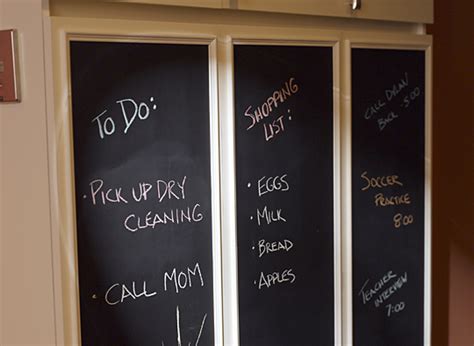 To Do:
• Pick up dry
cleaning
• Call Mom
Shopping
List:
• Eggs
• Milk
• Bread
• Apples
Call Dean
Back 5:00
Soccer
Practice
8:00
Teacher
Interview
7:00